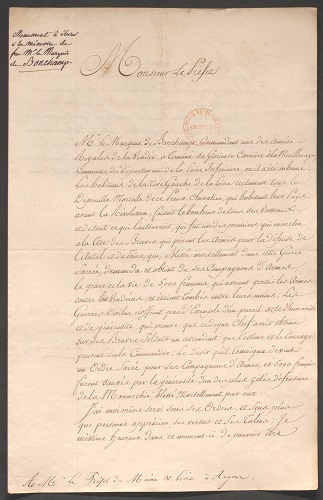 Monument à élever
à la mémoire de
feu Mr. le Marquis
de Bonchamp.
Monsieur Le Préfet
Mr. Le Marquis de Bonchamps, Commandant une des armées
Royales de la Vendée, a terminé sa glorieuse Carrière à la Meilleraye
Commune du département de la Loire Inférieure, où il a été inhumé.
Les habitans de la rive gauche de la Loire
Dépouille Mortelle de ce Preux Chevalier, qui habitait leur Pays
avant la Révolution, faisait le bonheur de tous ses Vassaux
et de tout ce qui l'entourait, qui fut un des premiers qui marcha
à la tête des Braves qui prirent les Armes pour la défense de
l'Autel et du Trône, qui, blessé mortellement dans cette Guerre
Sacrée, demanda et obtint de ses Compagnons d'Armes
la grace et la vie de 5000 français, qui avaient porté les Armes
contre les Vendéens, et étaient tombés entre leurs mains. Les
Guerres Civiles n'offrent pas d'Exemple d'un pareil acte d'humanité
et de générosité, qui prouve que ce digne Chef avait obtenu
sur ses Braves Soldats un ascendant, que l'estime et le courage
peuvent seuls Commander. Le désir qu'il témoigna devint
un Ordre Sacré pour ses Compagnons d'Armes, et 5000 français
furent sauvés par la générosité d'un des plus zélés défenseurs
de la Monarchie, blessé Mortellement par eux.
J'ai moi même servi sous ses Ordres, et j'ai pu plus
que personne apprécier ses vertus et ses talens. Je
m'estime heureux dans ce moment-ci, de pouvoir être
A Mr. Le Préfet de Maine & Loire à Angers.